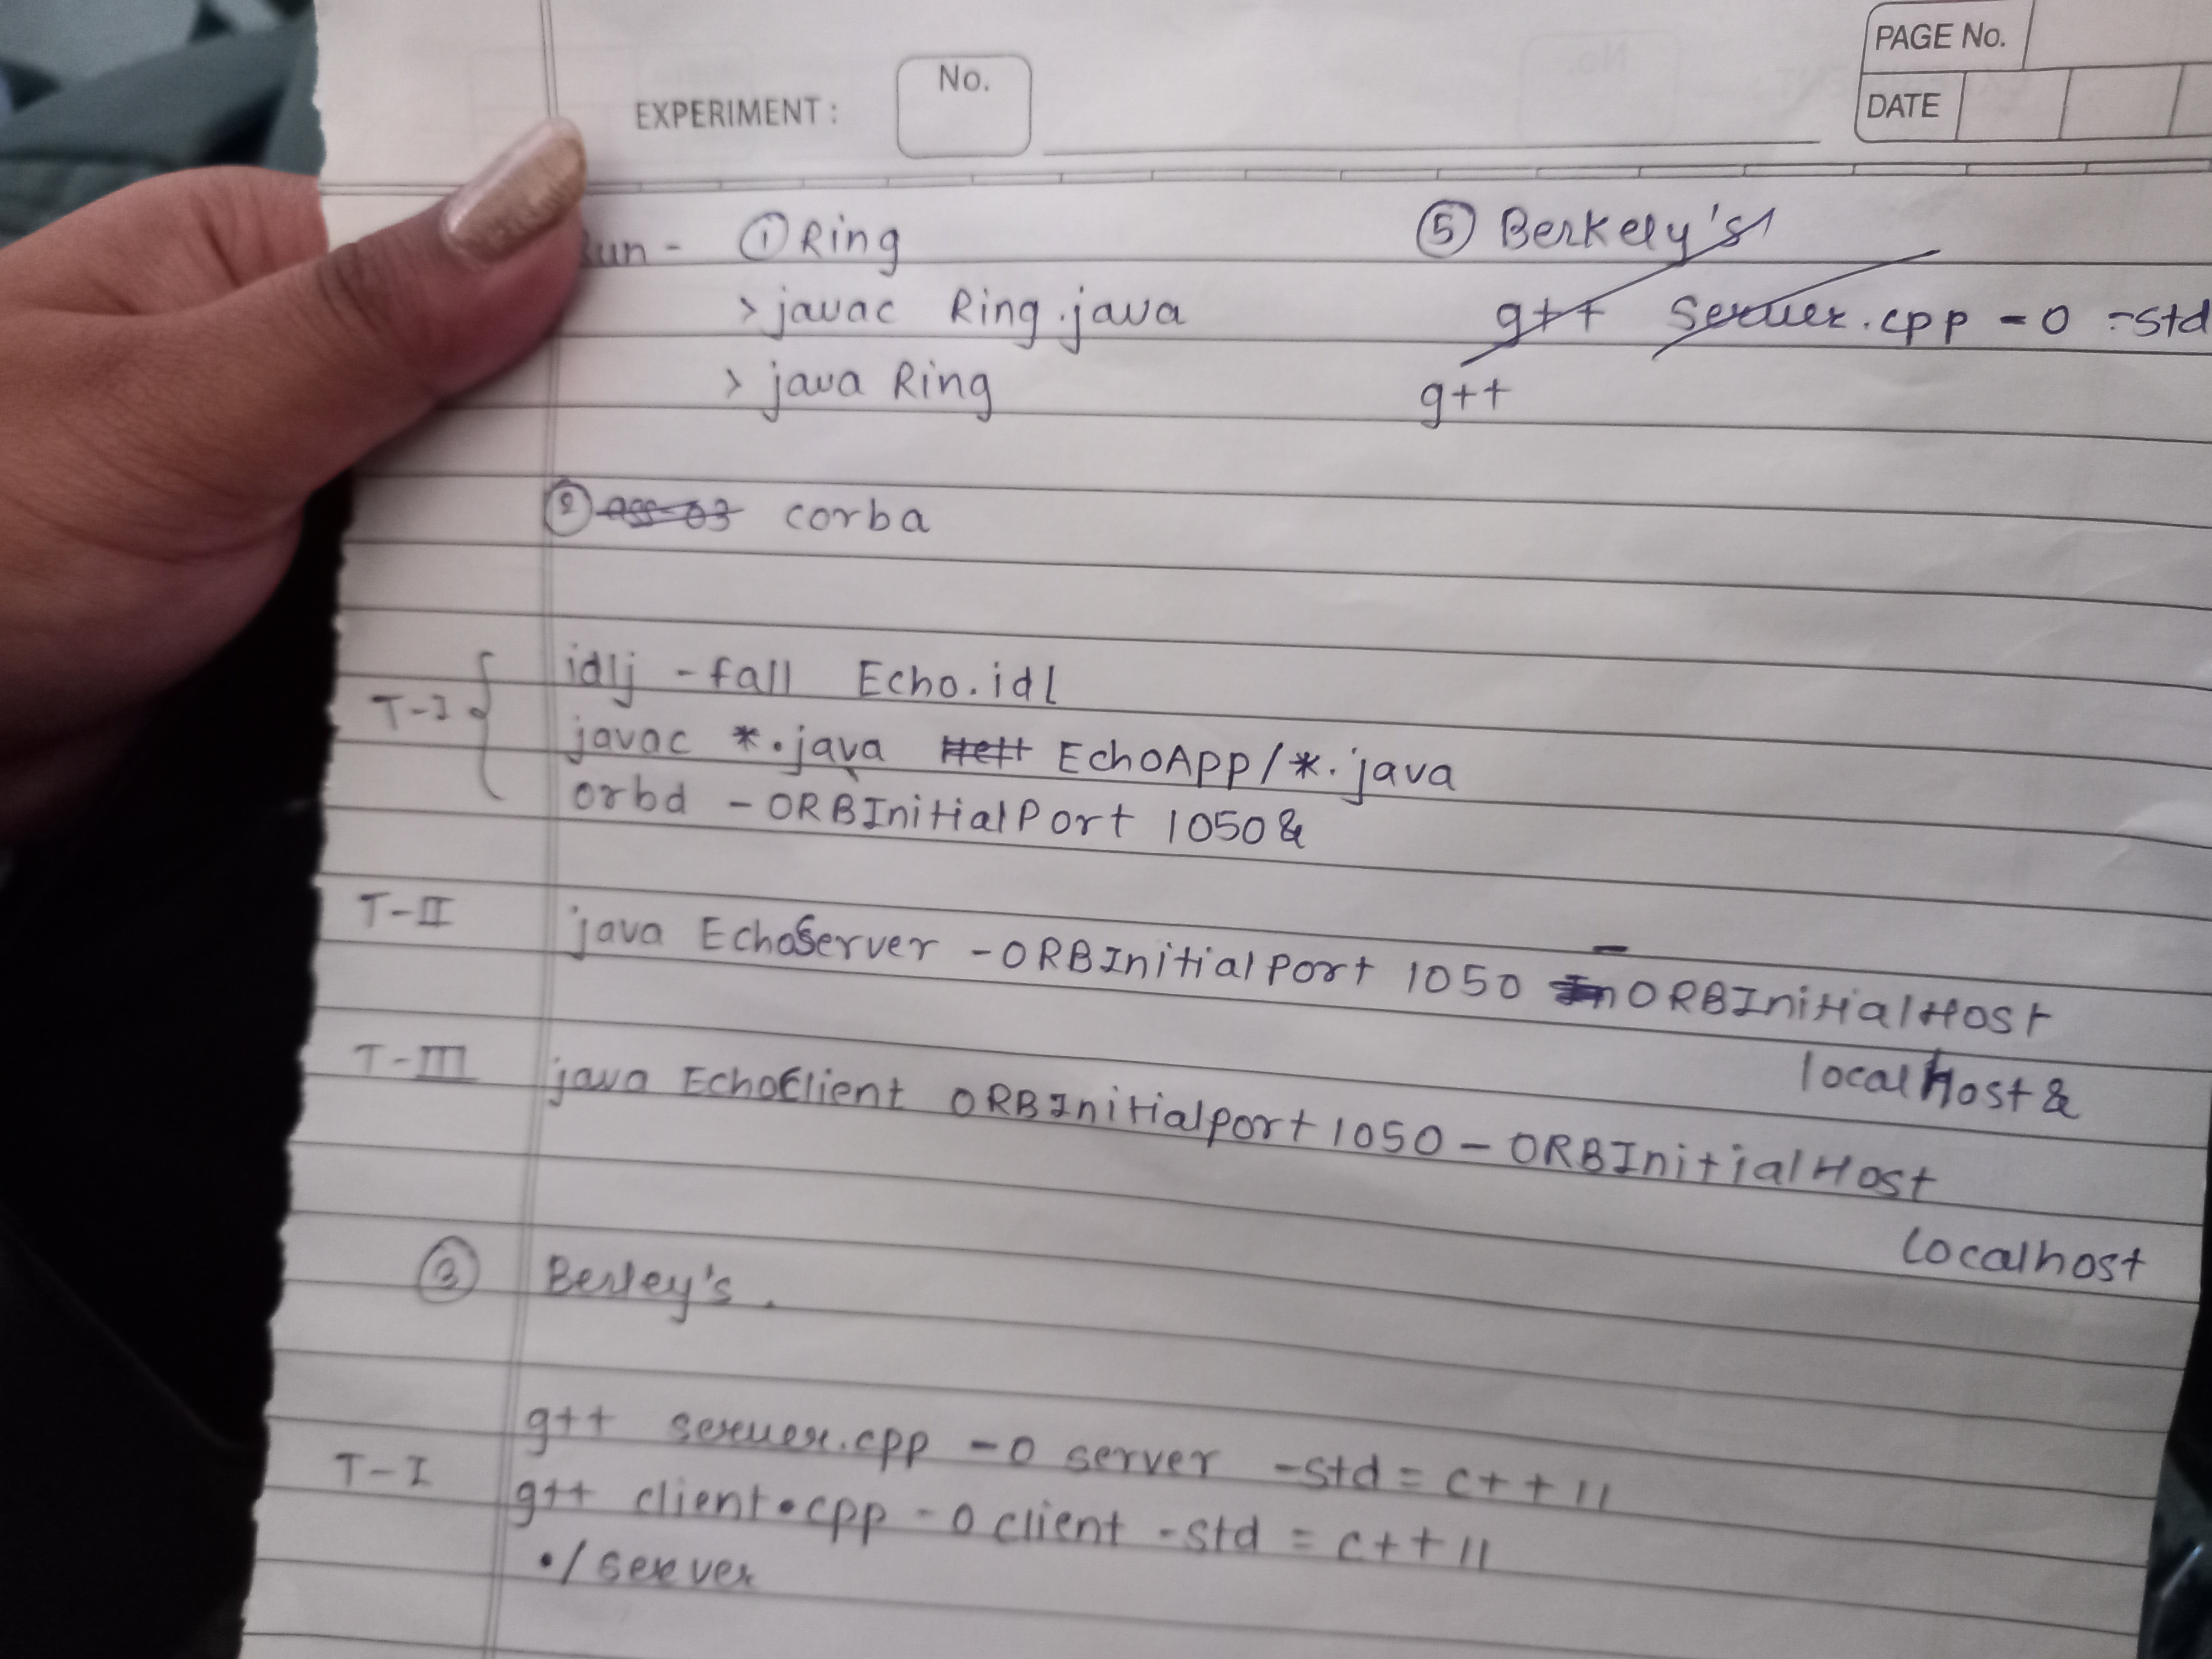 PAGE No.
EXPERIMENT: No. DATE
un - ① Ring ⑤ Berkely's
> javac Ring.java g++ Server.cpp -o -std
> java Ring g++
② corba
idlj -fall Echo.idl
T-I { javac *.java EchoApp/*.java
orbd -ORBInitialPort 1050&
T-II java EchoServer -ORBInitialPort 1050 -ORBInitialHost
localHost &
T-III java EchoClient ORBInitialport 1050 -ORBInitialHost
localhost
③ Berley's.
g++ server.cpp -o server -std = c++11
T-I g++ client.cpp -o client -std = c++11
./server